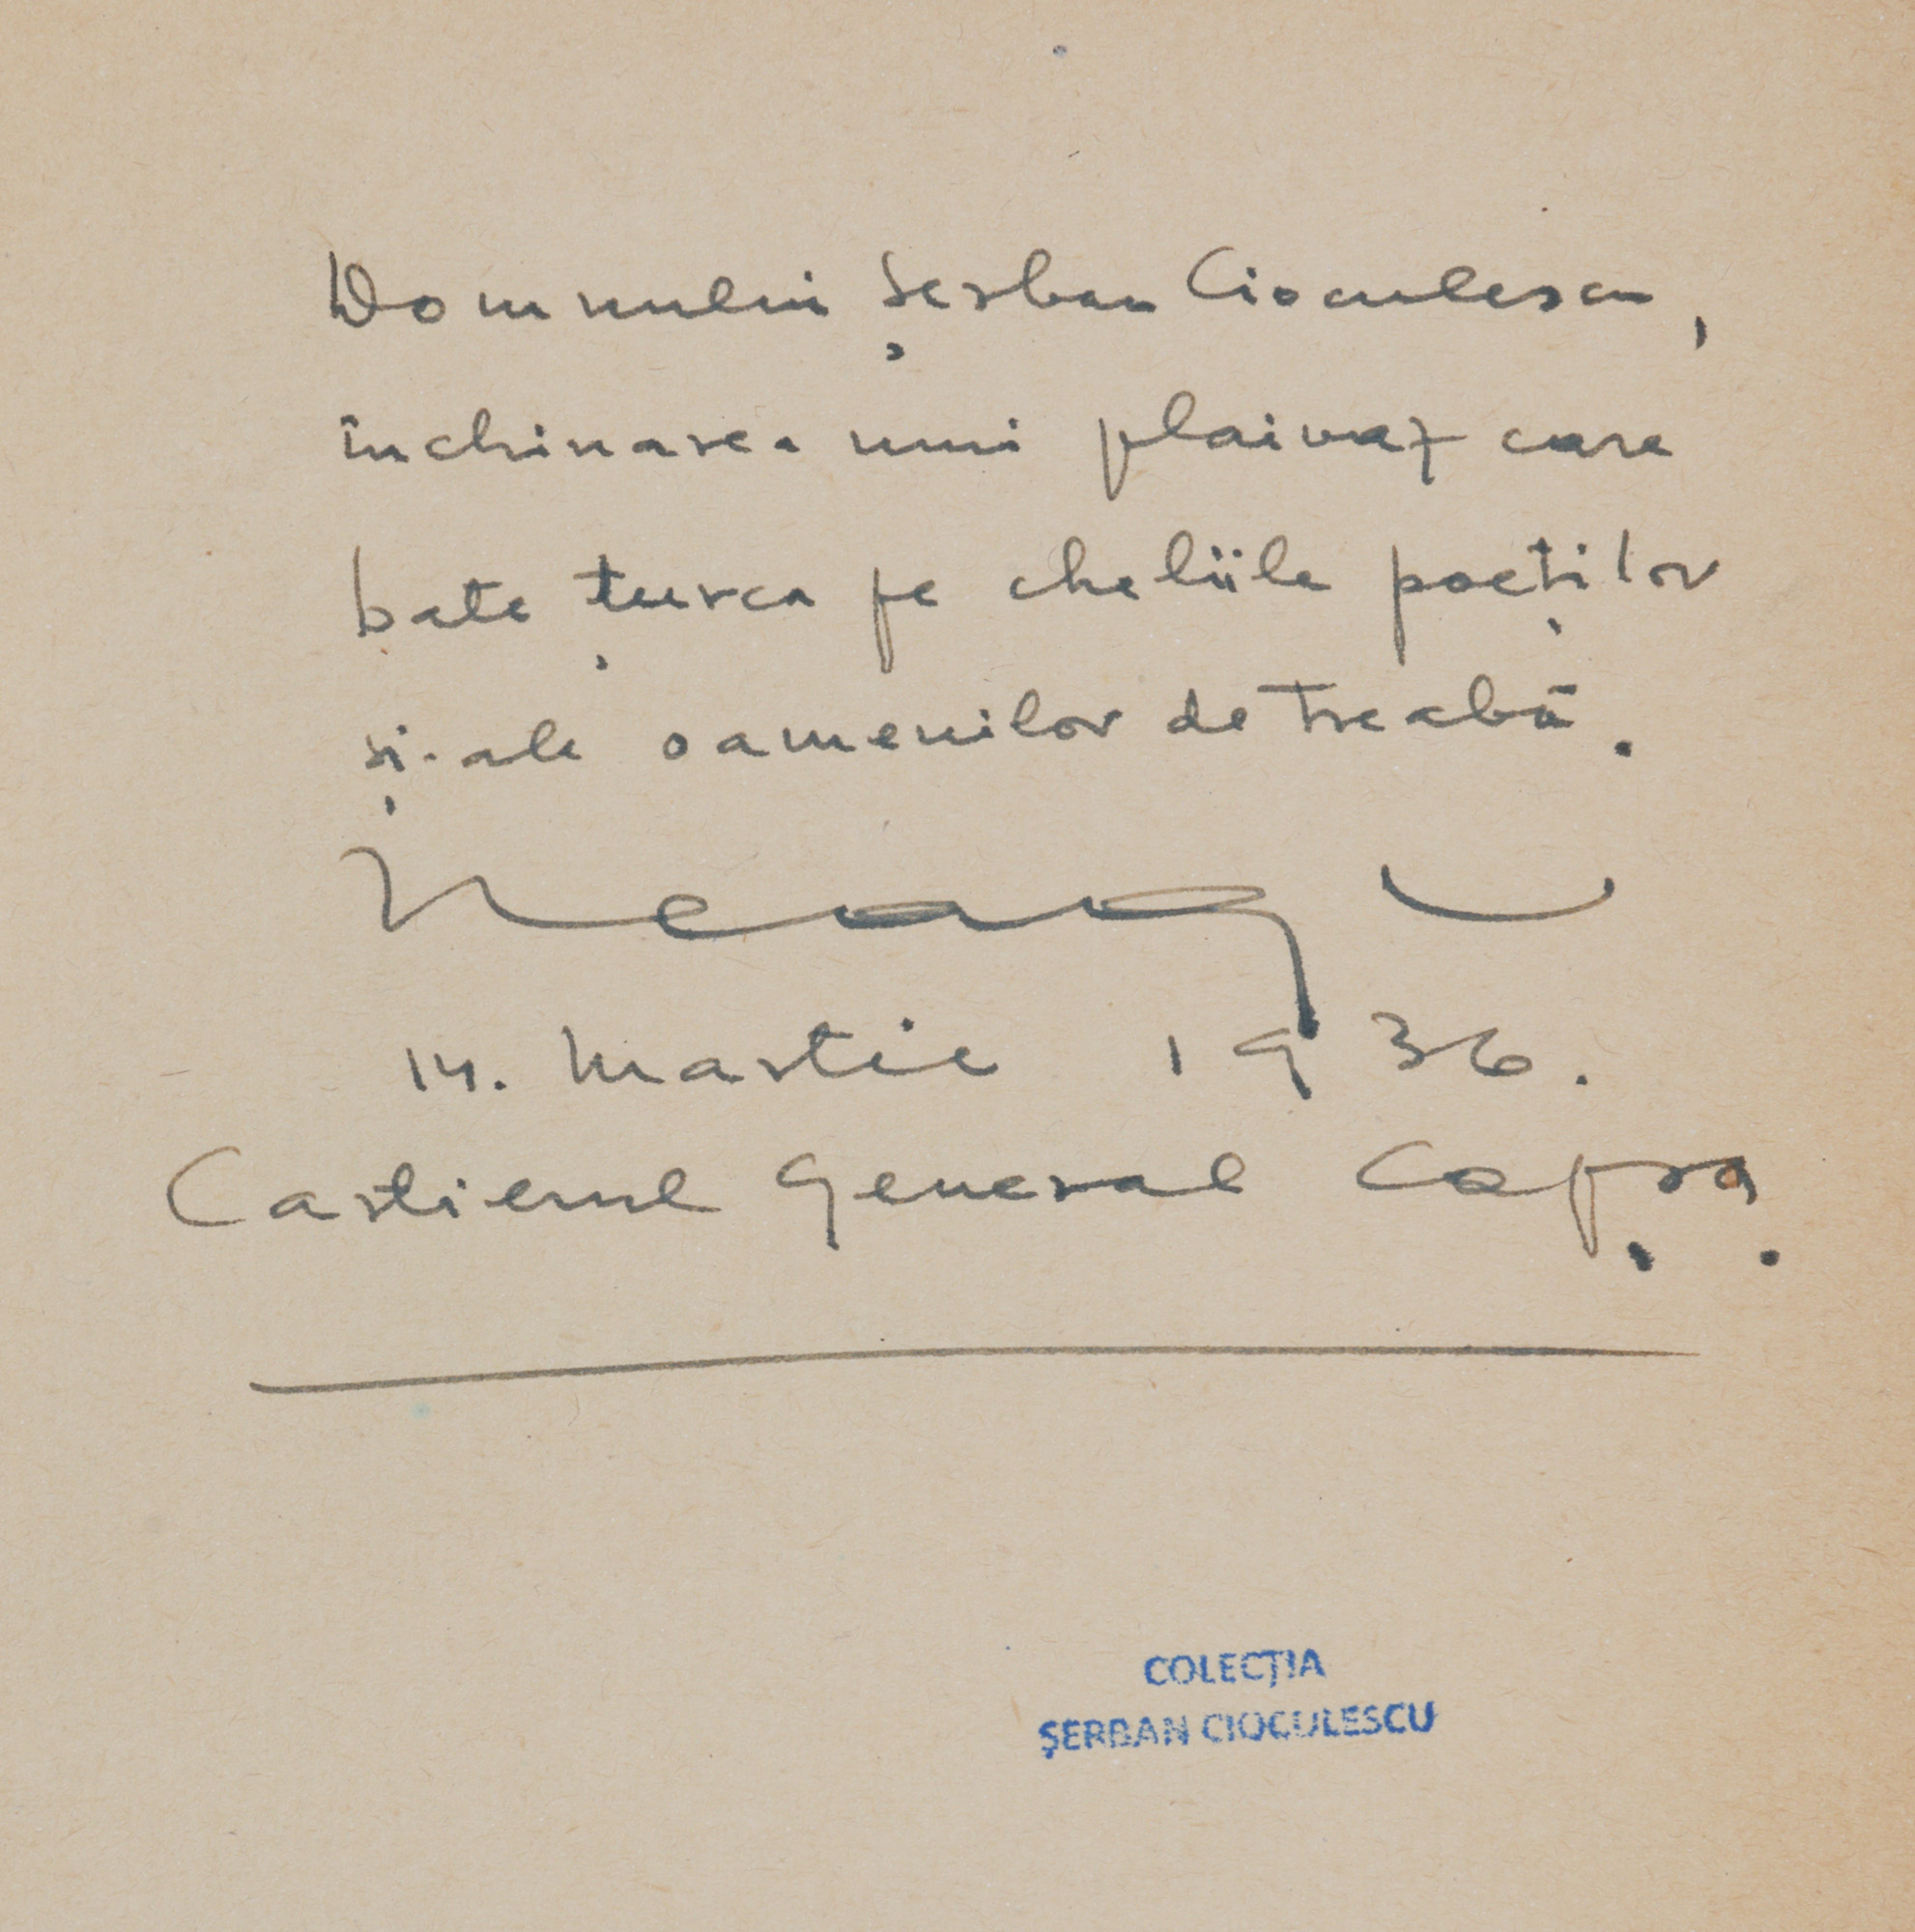 Domnului Șerban Cioculescu,
închinarea unui plaivaz care
bate țurca pe cheliile poeților
și-ale oamenilor de treabă.
Neagu
14. Martie 1936.
Cartierul General Capșa.
COLECȚIA
ȘERBAN CIOCULESCU